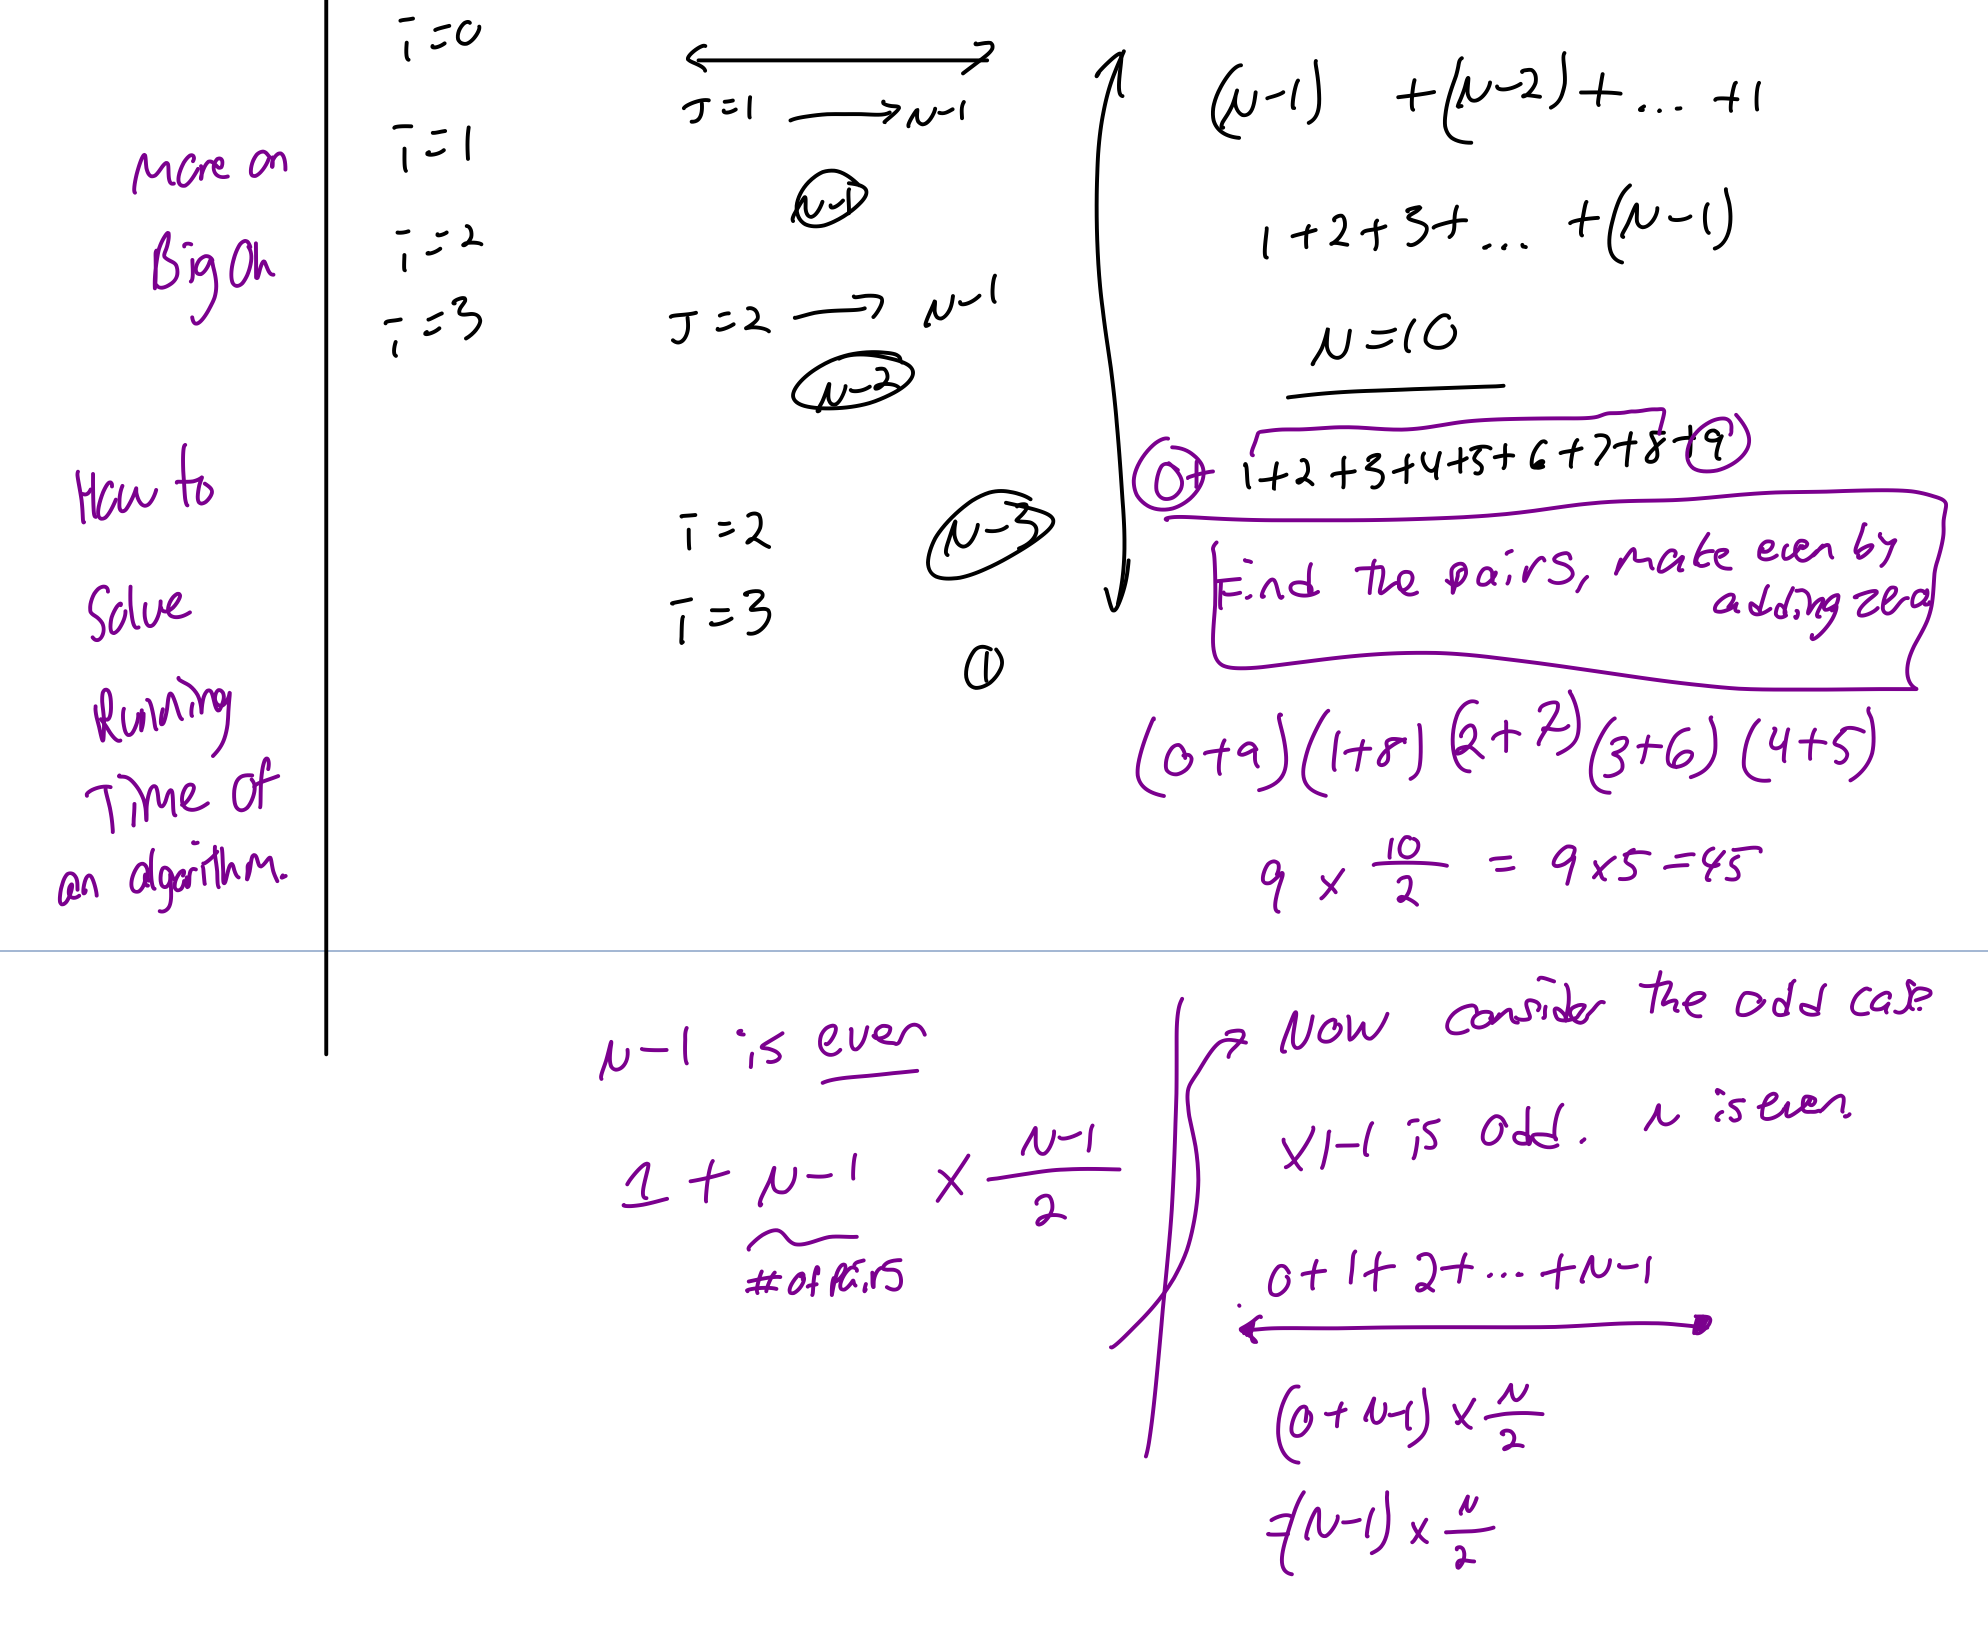 More on
Big Oh
How to
Solve
Running
Time of
an algorithm.
i=0
i=1
i=2
i=3
J=1 → N-1
N-1
J=2 → N-1
N-2
i=2
N-3
i=3
1
(N-1) +(N-2)+... +1
1+2+3+... +(N-1)
N=10
0+ 1+2+3+4+5+6+7+8+9
Find the pairs, make even by
adding zero
(0+9)(1+8)(2+7)(3+6)(4+5)
9 x 10/2 = 9x5=45
N-1 is even
1 + N-1 x N-1/2
# of pairs
Now consider the odd case
N-1 is odd. N is even.
0+1+2+...+N-1
(0+N-1) x N/2
=(N-1) x N/2